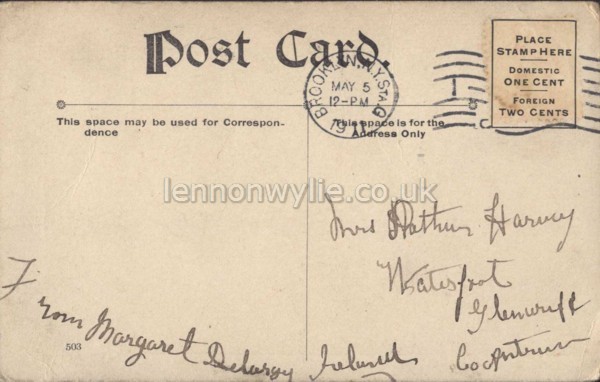 Post Card.
PLACE
STAMP HERE
DOMESTIC
ONE CENT
FOREIGN
TWO CENTS
BROOKLYN, N.Y. STA. G
MAY 5
12-PM
This space may be used for Correspon-
dence
This space is for the
Address Only
lennonwylie.co.uk
Mrs Arthur Harvey
Waterfoot
Co Antrim
Ireland
From Margaret Delargy
503